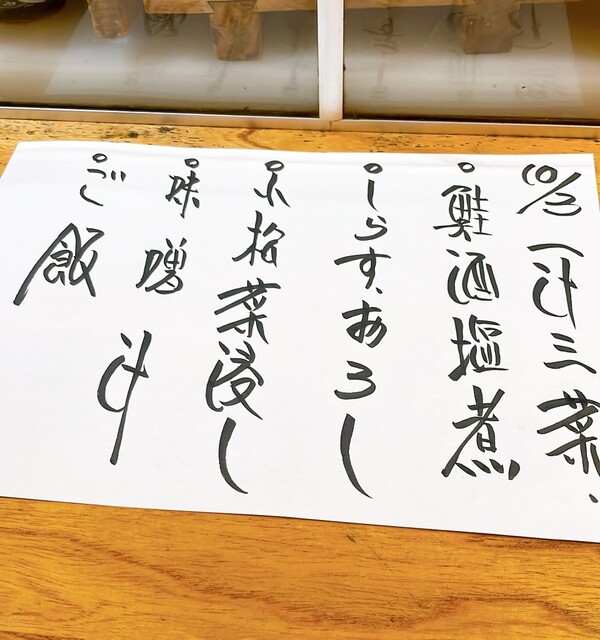 10/3 一汁三菜.
○鮭酒塩煮
○しらす、おろし
○小松菜浸し
○味噌汁
○ご飯